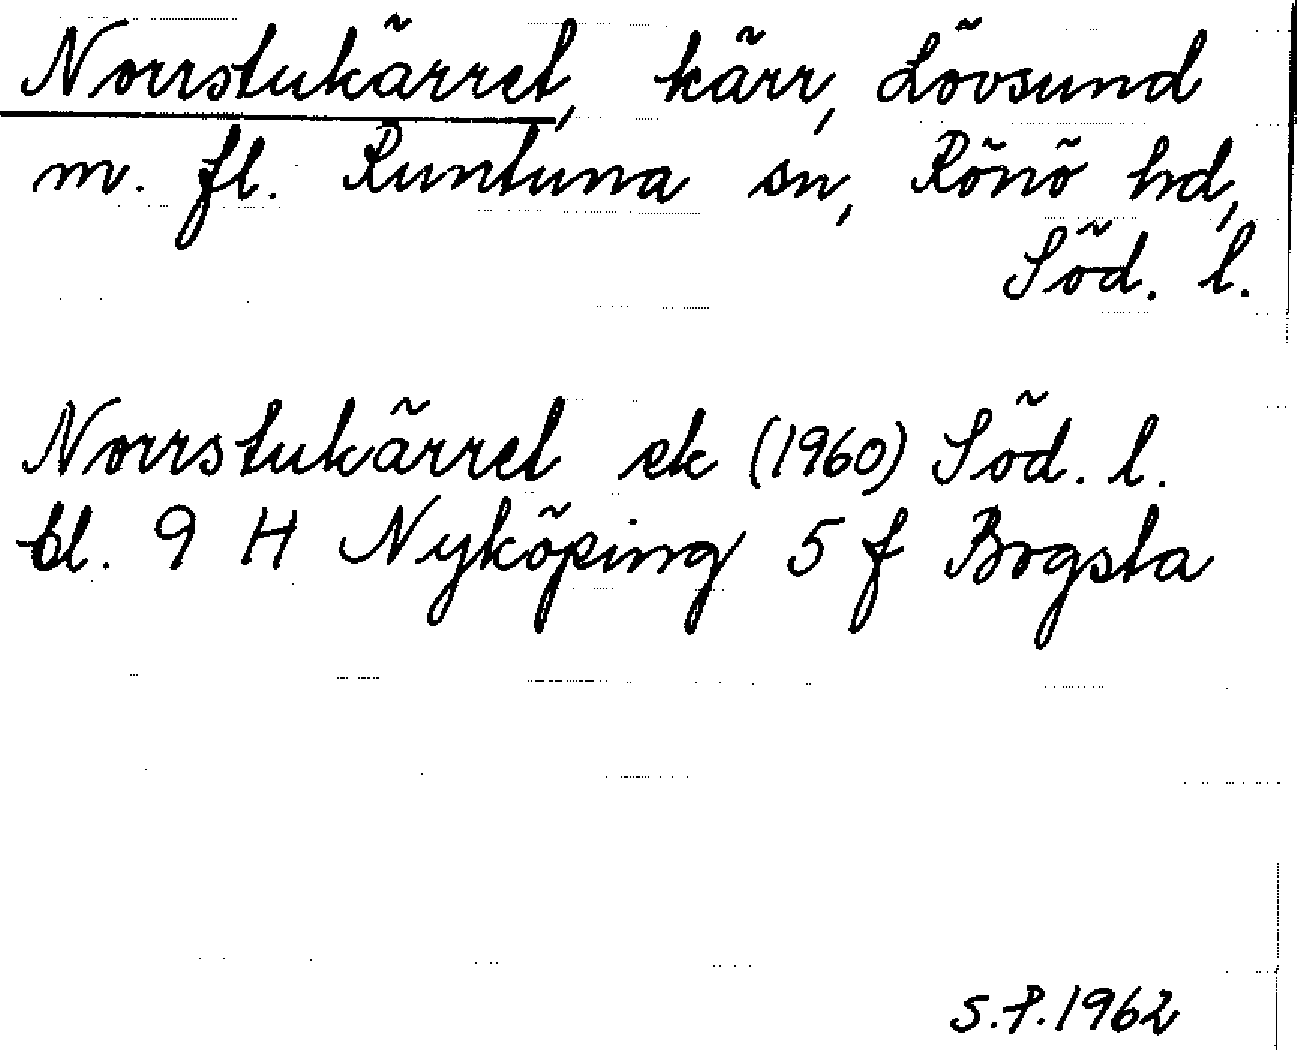 Norrstukärret, kärr, Lövsund
m. fl. Runtuna sn, Rönö hd,
Söd. l.
Norrstukärret ek (1960) Söd. l.
bl. 9 H Nyköping 5 f Bogsta
S.P. 1962